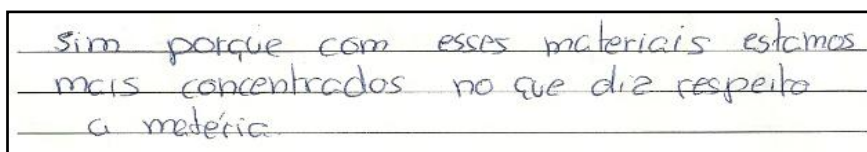 sim porque com esses materiais estamos
mais concentrados no que diz respeito
a matéria